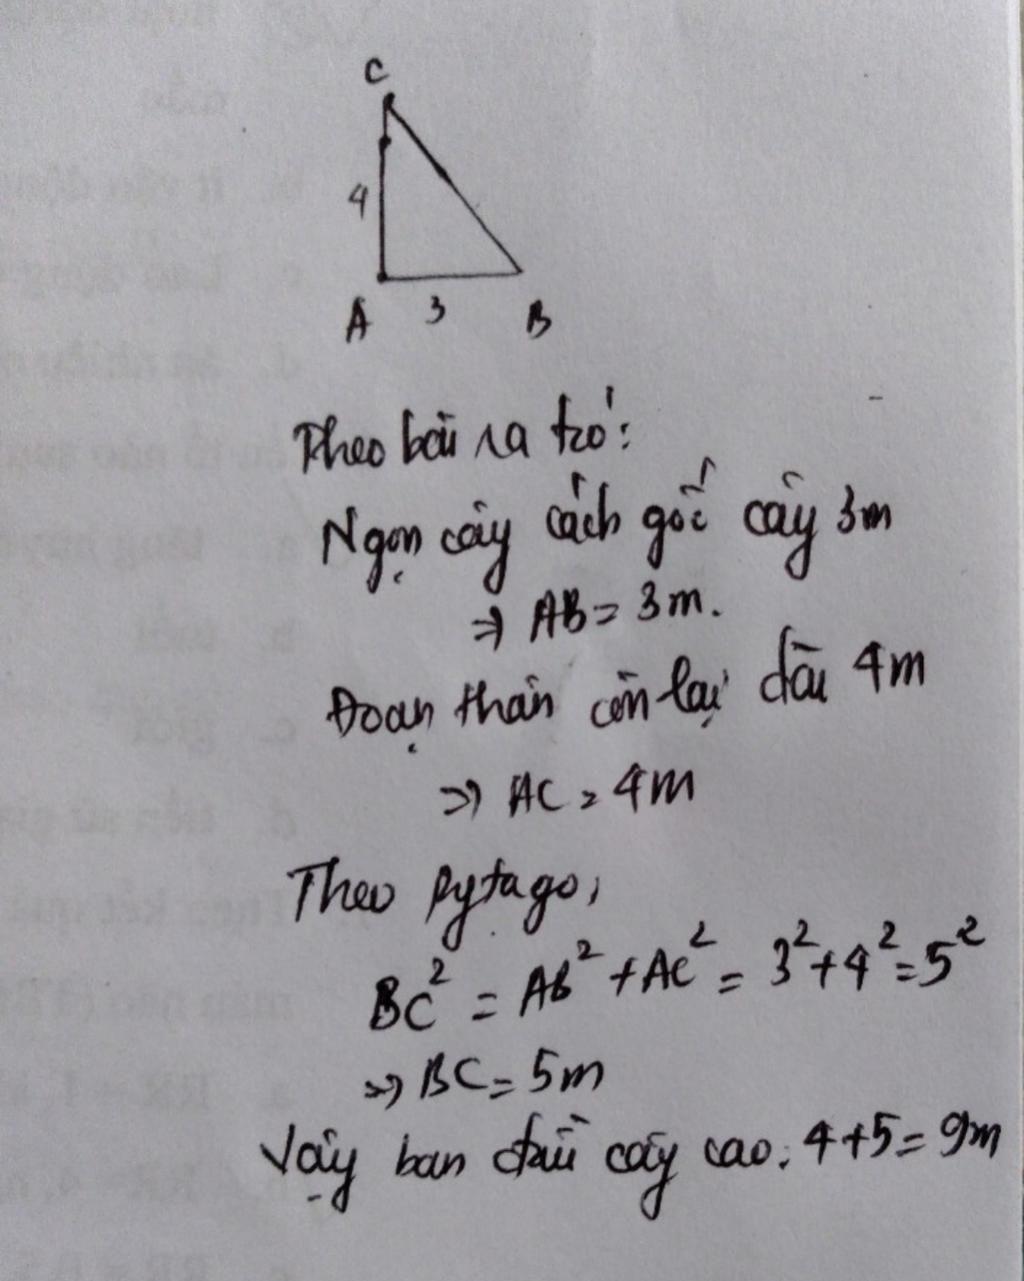 C
4
A 3 B
Theo bài ra ta có:
Ngọn cây cách gốc cây 3m
=> AB = 3m.
Đoạn thân còn lại dài 4m
=> AC = 4m
Theo pytago,
BC² = AB² + AC² = 3² + 4² = 5²
=> BC = 5m
Vậy ban đầu cây cao: 4+5 = 9m